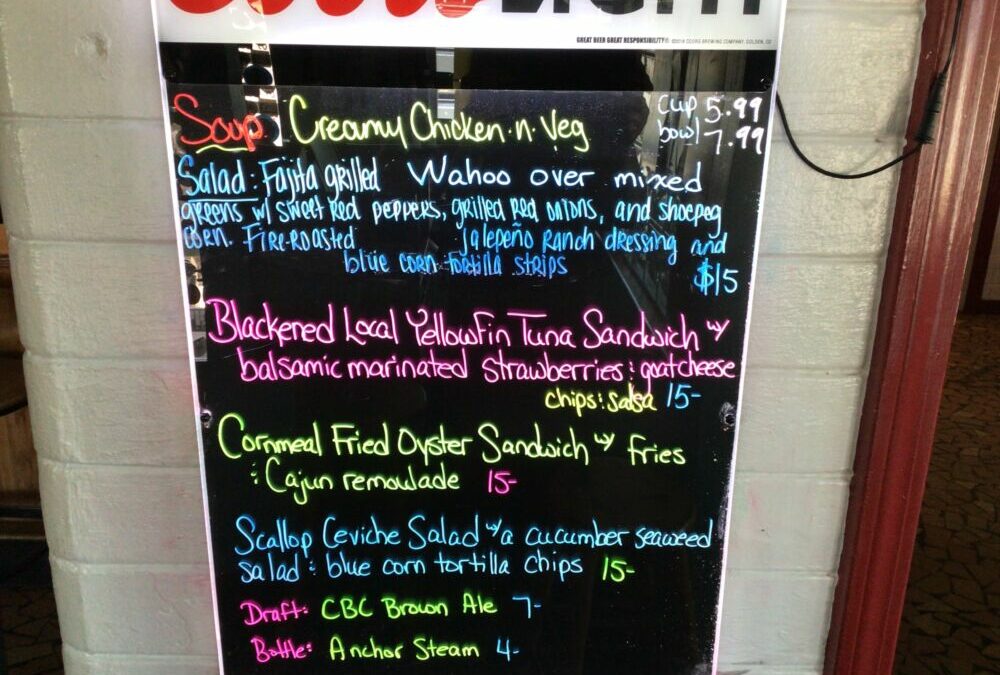 Coors LIGHT
GREAT BEER GREAT RESPONSIBILITY® ©2014 COORS BREWING COMPANY, GOLDEN, CO
Soup Creamy Chicken·n·Veg cup 5.99
bowl 7.99
Salad: Fajita grilled Wahoo over mixed
greens w/ sweet red peppers, grilled red onions, and shoepeg
corn. Fire-roasted jalepeño ranch dressing and
blue corn tortilla strips $15
Blackened Local Yellowfin Tuna Sandwich w/
balsamic marinated strawberries : goat cheese
chips : salsa 15-
Cornmeal Fried Oyster Sandwich w/ fries
: Cajun remoulade 15-
Scallop Ceviche Salad w/a cucumber seaweed
salad : blue corn tortilla chips 15-
Draft: CBC Brown Ale 7-
Bottle: Anchor Steam 4-